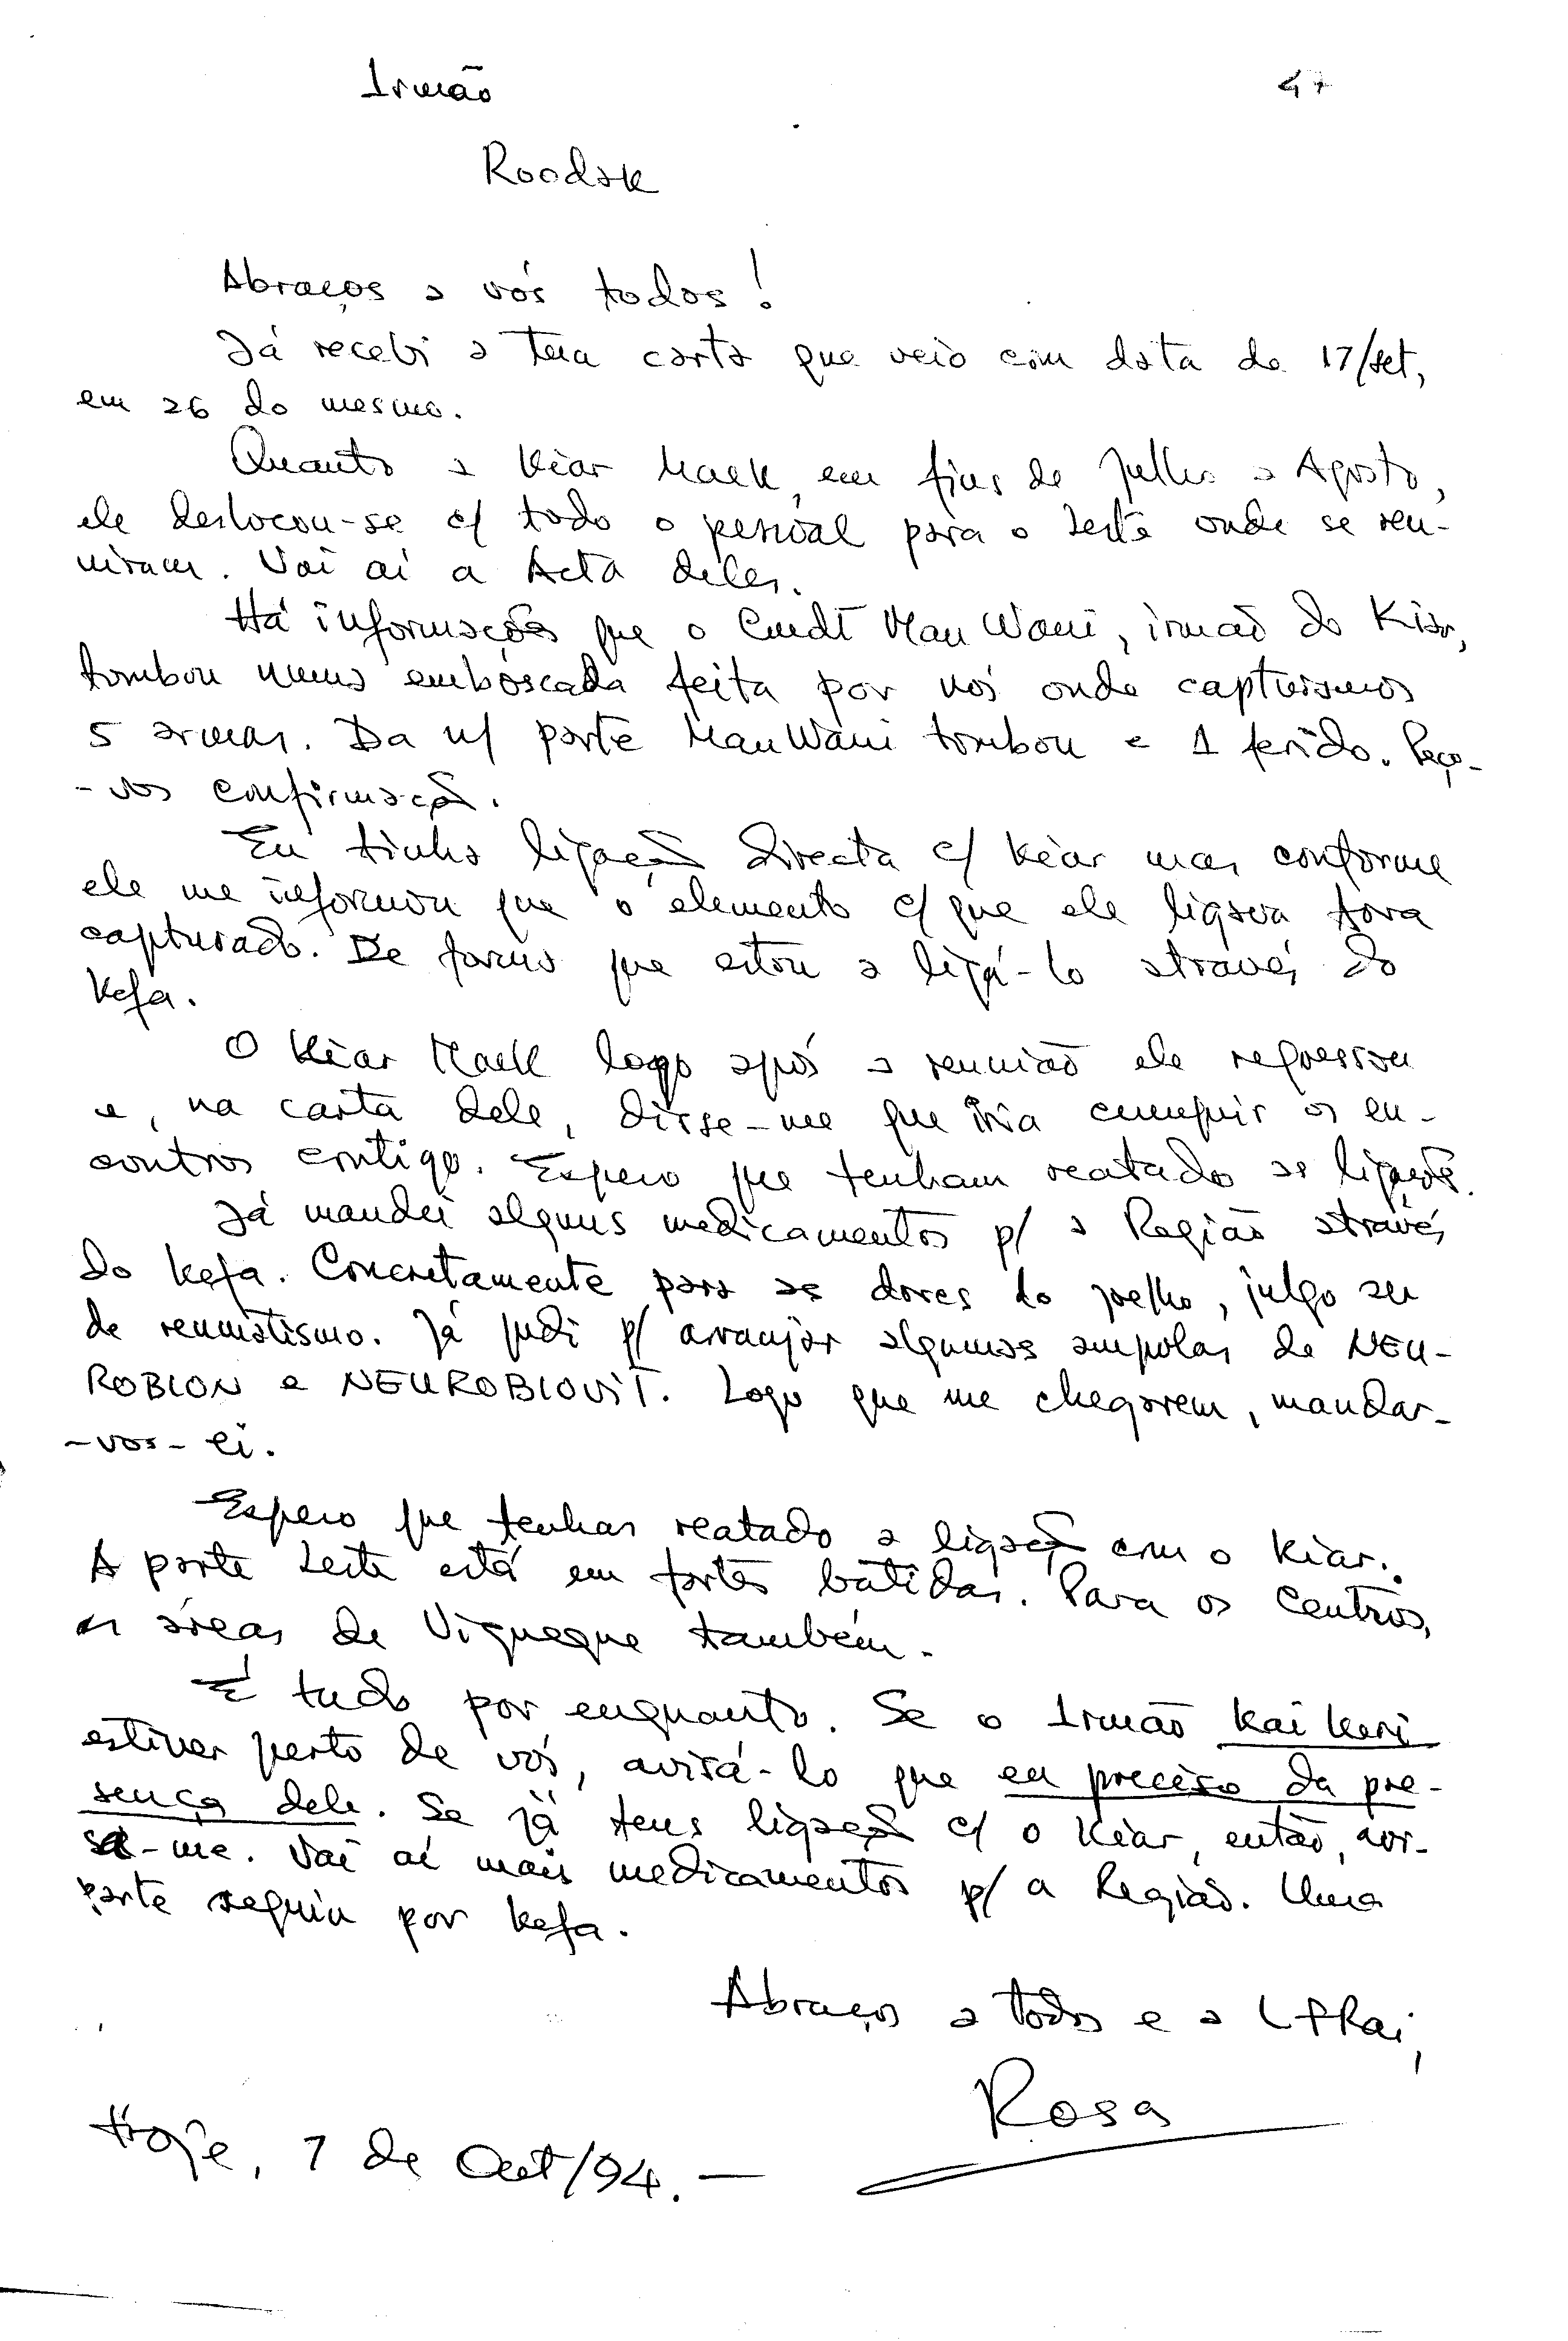 Irmão
47
Roodak
Abraços a vós todos!
Já recebi a tua carta que veio com data de 17/set,
em 26 do mesmo.
Quanto a Kiar Maek, em fins de Julho a Agosto,
ele deslocou-se c/ todo o pessoal para o Leste onde se reu-
niram. Vai aí a Acta deles.
Há informações que o Cmdt Mau Wani, irmão do Kiar,
tombou numa emboscada feita por nós onde capturámos
5 armas. Da n/ parte Mau Wani tombou e 1 ferido. Peço-
-vos confirmação.
Eu tinha ligação directa c/ Kiar mas conforme
ele me informou que o elemento c/ que ele ligava fora
capturado. De forma que estou a ligá-lo através do
Kefa.
O Kiar Maek logo após a reunião ele regressou
e, na carta dele, disse-me que iria cumprir os en-
contros contigo. Espero que tenham reatado as ligações.
Já mandei alguns medicamentos p/ a Região através
do Kefa. Concretamente para as dores do joelho, julgo ser
de reumatismo. Já pedi p/ arranjar algumas ampolas de NEU-
ROBION e NEUROBIOVIT. Logo que me chegarem, mandar-
-vos-ei.
Espero que tenhas reatado a ligação com o Kiar.
A parte Leste está em fortes batidas. Para os Centros,
as áreas de Viqueque também.
É tudo por enquanto. Se o Irmão Kai Keri
estiver perto de vós, avisá-lo que eu preciso da pre-
sença dele. Se já tens ligação c/ o Kiar, então, avi-
sa-me. Vai aí mais medicamentos p/ a Região. Uma
parte seguiu por Kefa.
Abraços a todos e a
Rosa
Hoje, 7 de Out/94.—